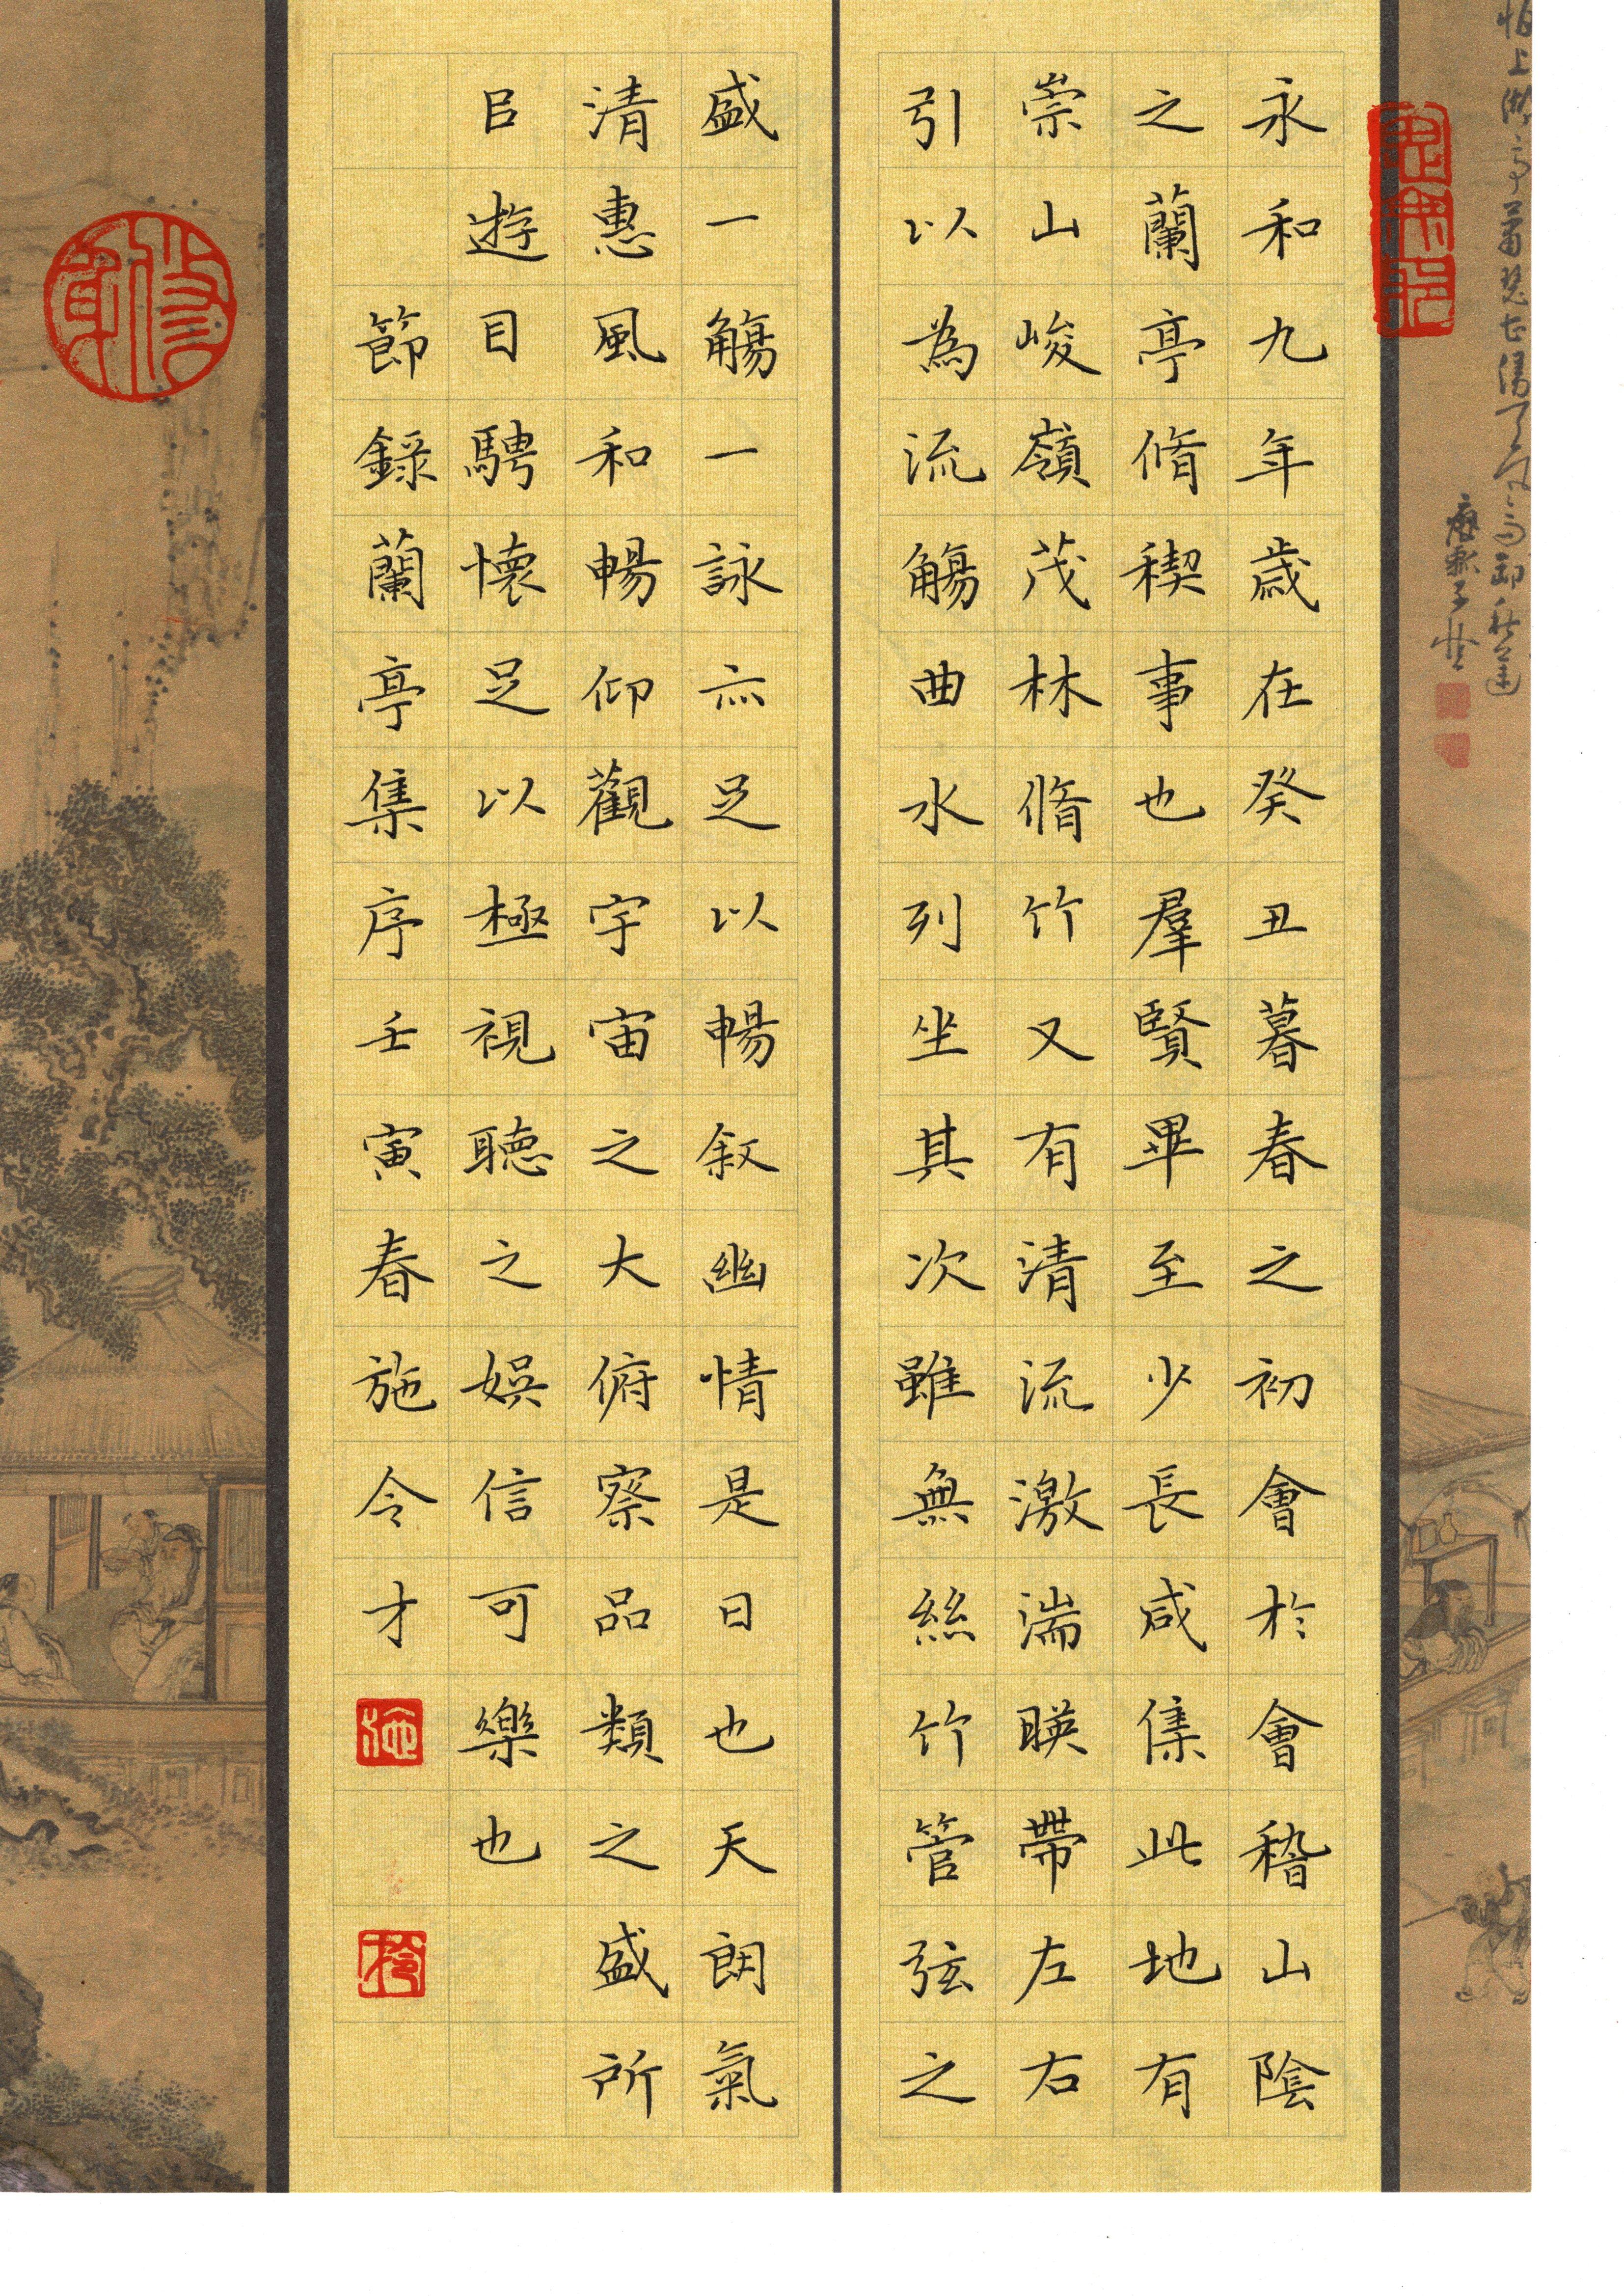 永和九年歲在癸丑暮春之初會於會稽山陰
之蘭亭脩稧事也羣賢畢至少長咸集此地有
崇山峻嶺茂林脩竹又有清流激湍暎帶左右
引以為流觴曲水列坐其次雖無絲竹管弦之
盛一觴一詠亦足以暢叙幽情是日也天朗氣
清惠風和暢仰觀宇宙之大俯察品類之盛所
㠯遊目騁懷足以極視聽之娛信可樂也
節錄蘭亭集序壬寅春施令才
施